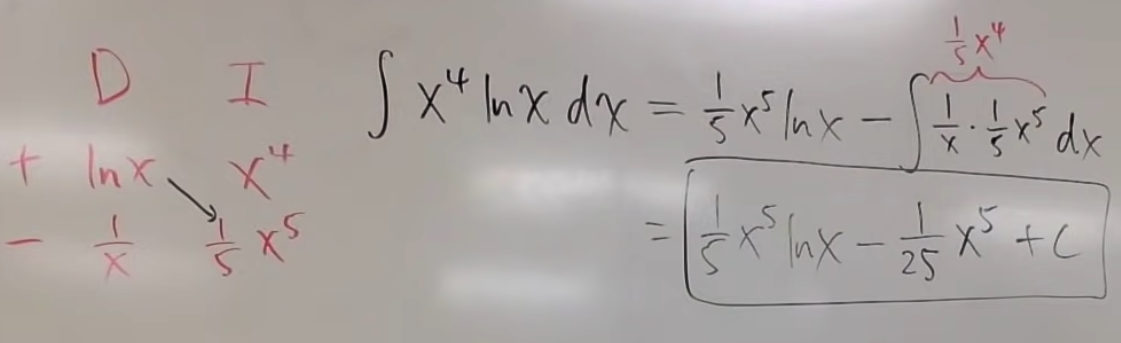 D I
+ ln x x⁴
− 1/x 1/5 x⁵
1/5 x⁴
∫ x⁴ ln x dx = 1/5 x⁵ ln x − ∫ 1/x · 1/5 x⁵ dx
= 1/5 x⁵ ln x − 1/25 x⁵ + C